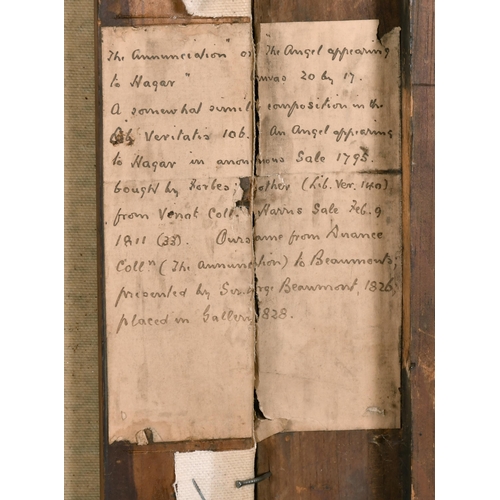 The Annunciation" or "The Angel appearing
to Hagar" Canvas 20 by 17.
A somewhat simil composition in the
Lib Veritatis 106. An Angel appearing
to Hagar in anonymous Sale 1795.
bought by Forbes; other (Lib. Ver. 140)
from Coll. Harris Sale Feb. 9
1811 (33). Ours came from
Coll.n (The Annunciation) to Beaumont;
presented by Sir George Beaumont, 1826,
placed in Gallery, 1828.